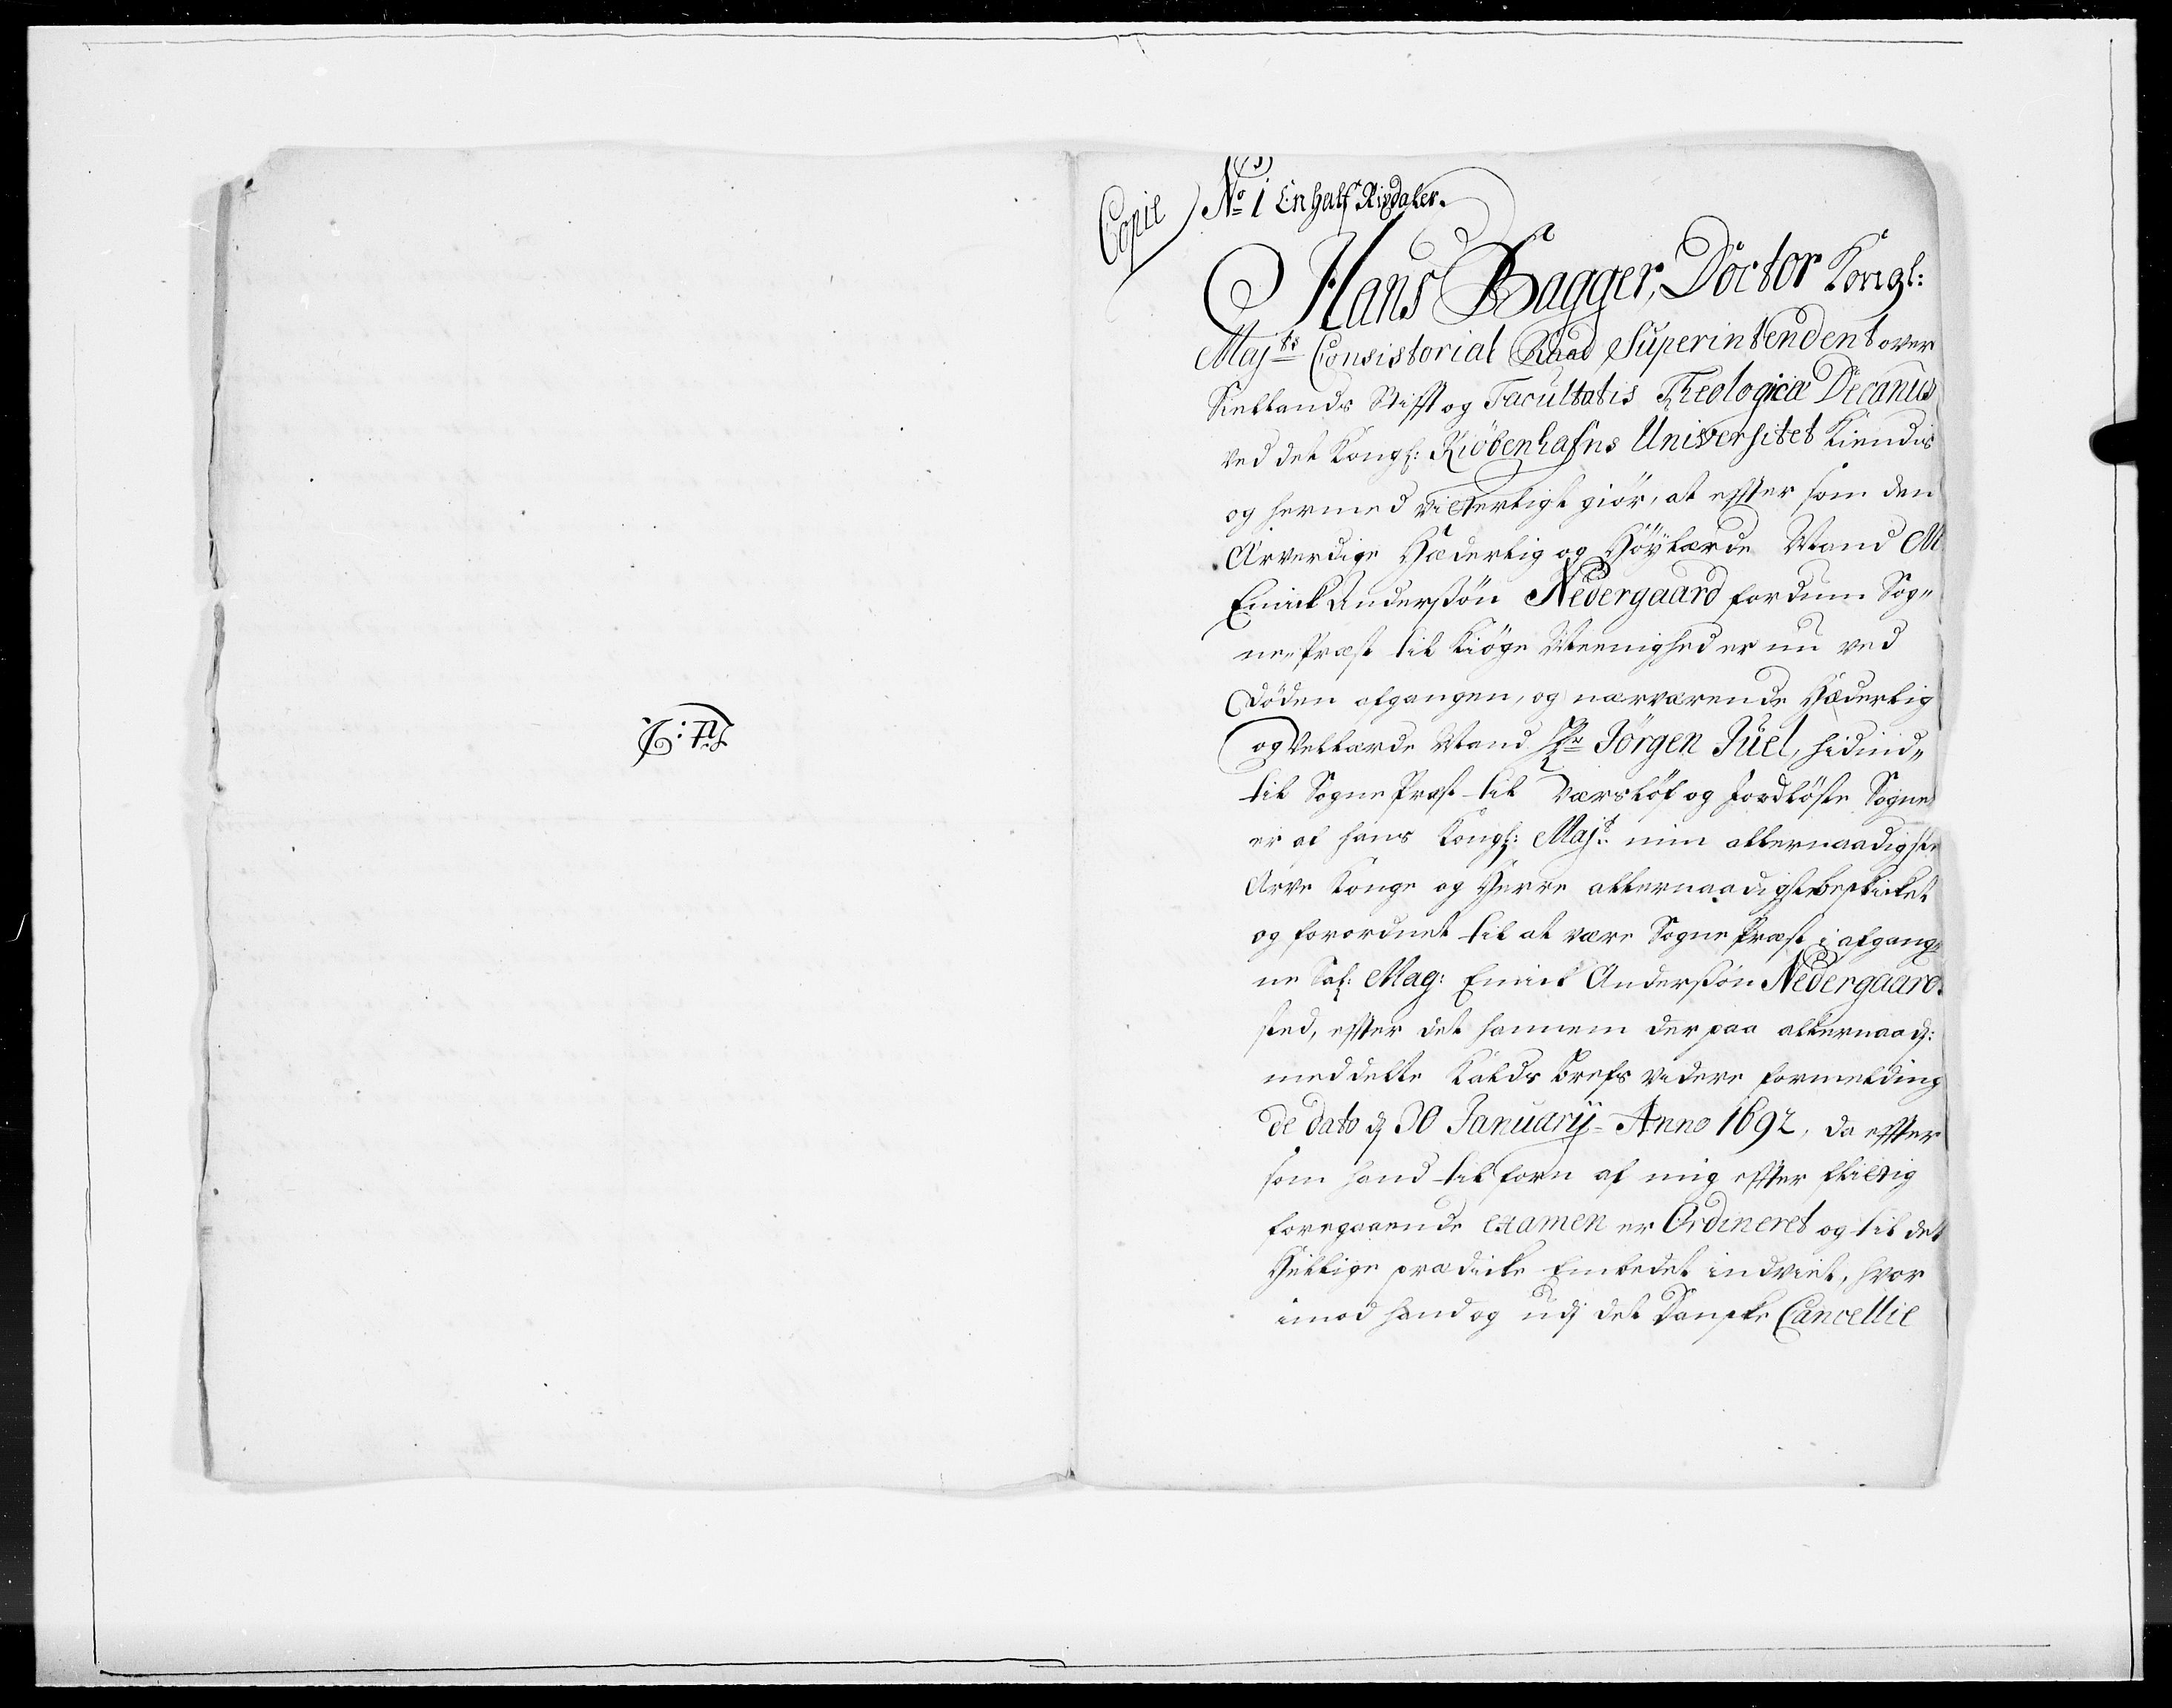 Copie
No 1 En half Rixdaler.
Hans Bagger, Doctor Kongl:
Majts Consistorial Raad Superintendent over
Siellands Stift og Facultatis Theologicæ Decanus
ved det Kongl: Kiöbenhafns Universitet Kiendis
og hermed vitterligt giör, at effter som den
Ærverdige Hæderlig og Höylærde Mand M
Enich Anderssön Nedergaard fordum Sog„
ne„Præst til Kiöge Meenighed er nu ved
Döden afgangen, og nærværende Hæderlig
og Vellærde Mand Hr Jörgen Juel, hidind„
til Sogne Præst til Værslöf og Jordlöse Sogne
er af hans Kongl: Majt. min allernaadigste
Arve Konge og Herre allernaadigst beskicket
og forordnet til at være Sogne Præst i afgang„
ne Sal: Mag: Enich Anderssön Nedergaard
sted, effter det hannem der paa allernaad:
meddelte Kalds brefs videre formelding
de dato d 30 Januarij Anno 1692, da effter
som hand tilforn af mig effter skickig
foregaaende examen er Ordineret og til det
Hellige prædicke Embedet indviet, hvor
imod hand og udj det Danske Cancellie